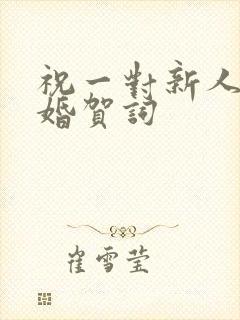 祝一對新人
婚賀詞
崔雪莹